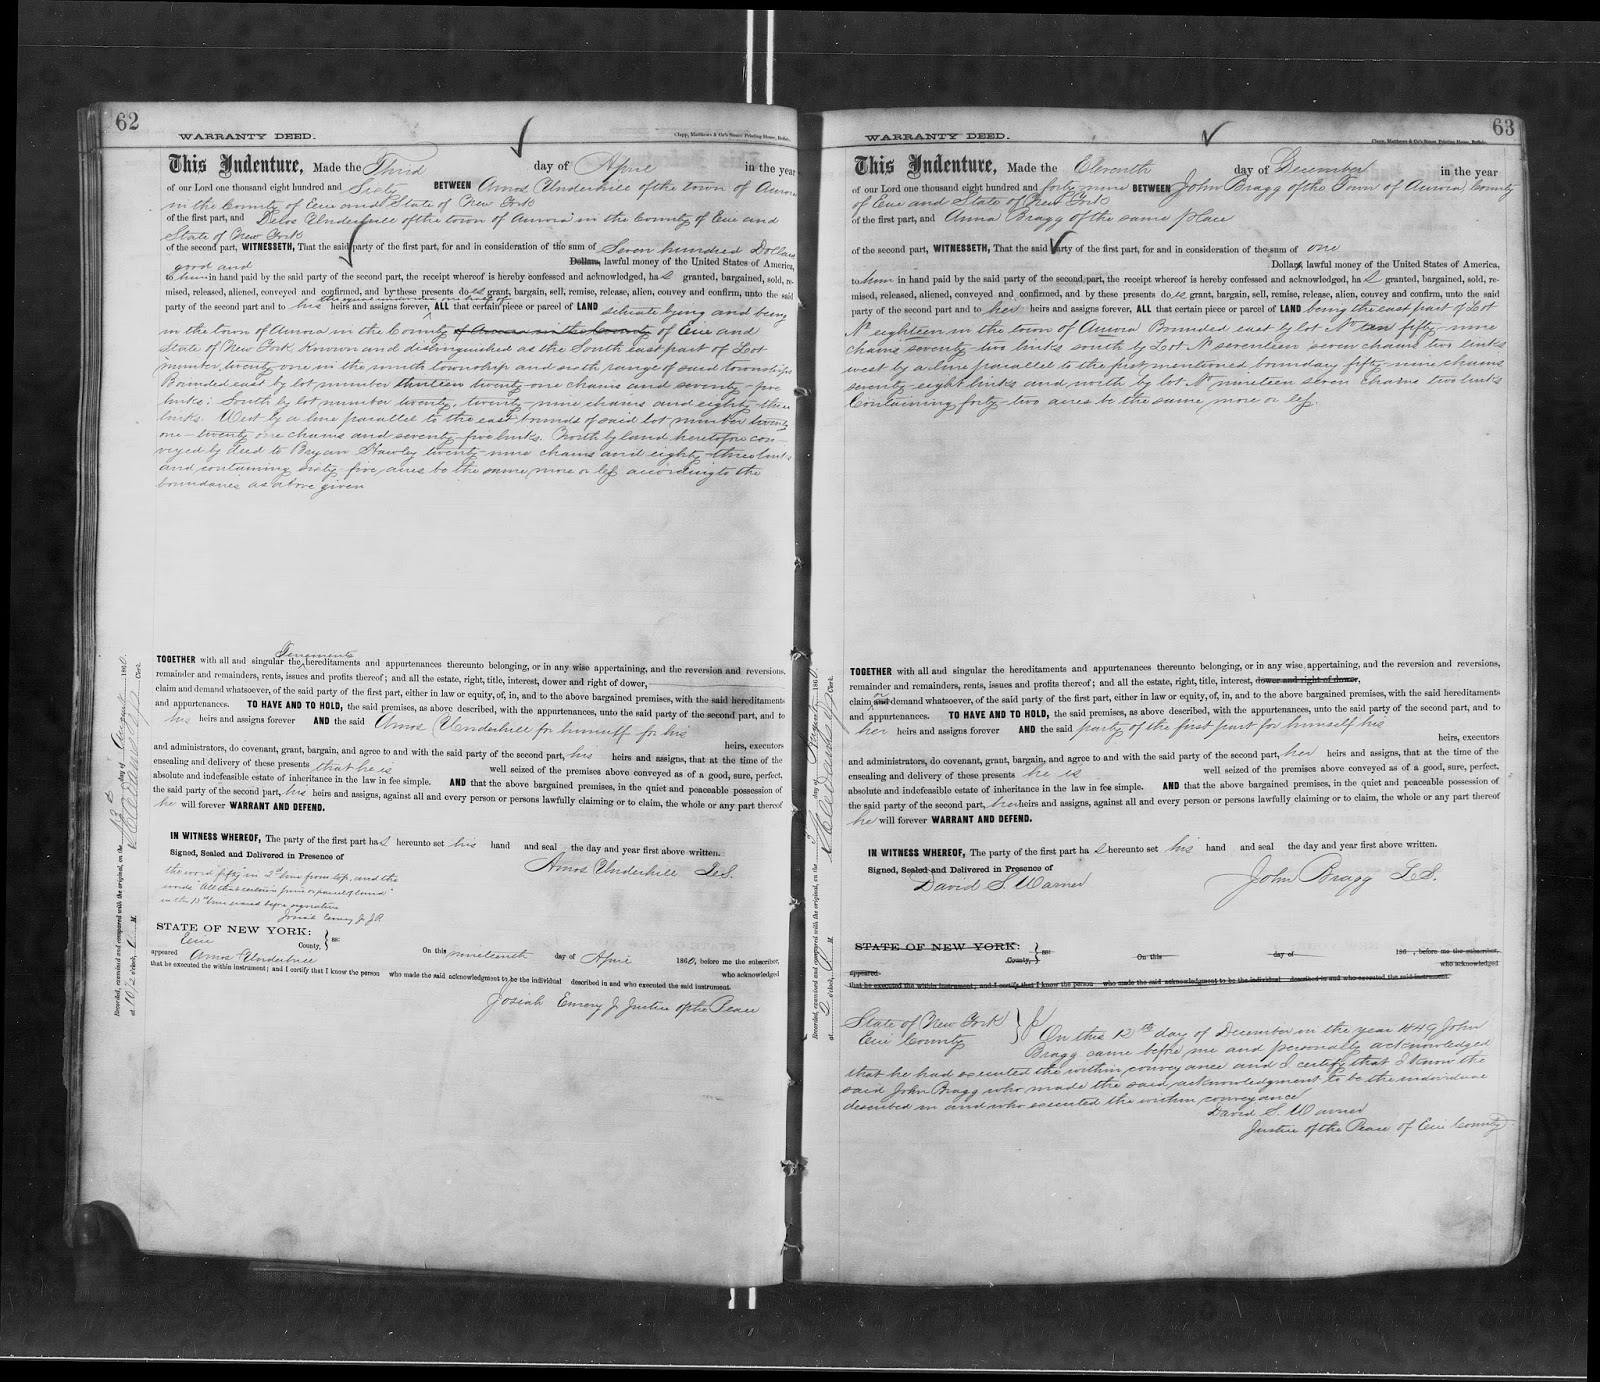 62
WARRANTY DEED.
Clapp, Matthews & Co's Steam Printing House, Buffalo.
This Indenture, Made the Third day of April in the year
of our Lord one thousand eight hundred and Sixty BETWEEN Amos Underhill of the town of Aurora
in the County of Erie and State of New York
of the first part, and Delos Underhill of the town of Aurora in the County of Erie and
State of New York
of the second part, WITNESSETH, That the said party of the first part, for and in consideration of the sum of Seven hundred Dollars
good and Dollars, lawful money of the United States of America,
to him in hand paid by the said party of the second part, the receipt whereof is hereby confessed and acknowledged, has granted, bargained, sold, re-
mised, released, aliened, conveyed and confirmed, and by these presents does grant, bargain, sell, remise, release, alien, convey and confirm, unto the said
the equal undivided one half of
party of the second part and to his heirs and assigns forever, ALL that certain piece or parcel of LAND situate lying and being
in the town of Aurora in the County of Aurora in the County of Erie and
State of New York known and distinguished as the South east part of Lot
number twenty one in the ninth township and sixth range of said townships
Bounded east by lot number thirteen twenty-one chains and seventy-five
links: South by lot number twenty, twenty-nine chains and eighty-three
links. West by a line parallel to the east bounds of said lot number twenty
one-twenty one chains and seventy-five links. North by land heretofore con-
veyed by deed to Bryan Hawley twenty-nine chains and eighty-three links
and containing sixty-five acres be the same more or less according to the
boundaries as above given
Tenements
TOGETHER with all and singular the hereditaments and appurtenances thereunto belonging, or in any wise appertaining, and the reversion and reversions,
remainder and remainders, rents, issues and profits thereof; and all the estate, right, title, interest, dower and right of dower,
claim and demand whatsoever, of the said party of the first part, either in law or equity, of, in, and to the above bargained premises, with the said hereditaments
and appurtenances. TO HAVE AND TO HOLD, the said premises, as above described, with the appurtenances, unto the said party of the second part, and to
his heirs and assigns forever AND the said Amos Underhill for himself for his
heirs, executors
and administrators, do covenant, grant, bargain, and agree to and with the said party of the second part, his heirs and assigns, that at the time of the
ensealing and delivery of these presents that he is well seized of the premises above conveyed as of a good, sure, perfect,
absolute and indefeasible estate of inheritance in the law in fee simple. AND that the above bargained premises, in the quiet and peaceable possession of
the said party of the second part, his heirs and assigns, against all and every person or persons lawfully claiming or to claim, the whole or any part thereof
he will forever WARRANT AND DEFEND.
IN WITNESS WHEREOF, The party of the first part has hereunto set his hand and seal the day and year first above written.
Signed, Sealed and Delivered in Presence of Amos Underhill L.S.
the word fifty in 2d line from top, and the
words "All that certain piece or parcel of land"
in the 13th line erased before signature
Josiah Emery Jr J.P.
STATE OF NEW YORK: } ss:
Erie County,
On this nineteenth day of April 1860, before me the subscriber,
appeared Amos Underhill who acknowledged
that he executed the within instrument; and I certify that I know the person who made the said acknowledgment to be the individual described in and who executed the said instrument.
Josiah Emery Jr Justice of the Peace
Recorded, examined and compared with the original, on the 3d day of August 1860.
at 10 1/2 o'clock, A M. Clerk.
63
WARRANTY DEED.
Clapp, Matthews & Co's Steam Printing House, Buffalo.
This Indenture, Made the Eleventh day of December in the year
of our Lord one thousand eight hundred and forty nine BETWEEN John Bragg of the Town of Aurora County
of Erie and State of New York
of the first part, and Anna Bragg of the same place
of the second part, WITNESSETH, That the said party of the first part, for and in consideration of the sum of one
Dollar, lawful money of the United States of America,
to him in hand paid by the said party of the second part, the receipt whereof is hereby confessed and acknowledged, has granted, bargained, sold, re-
mised, released, aliened, conveyed and confirmed, and by these presents does grant, bargain, sell, remise, release, alien, convey and confirm, unto the said
party of the second part and to her heirs and assigns forever, ALL that certain piece or parcel of LAND being the east part of Lot
No eighteen in the town of Aurora Bounded east by lot No ten fifty-nine
chains seventy-two links south by Lot No seventeen seven chains two links
west by a line parallel to the first mentioned boundary fifty-nine chains
seventy-eight links and north by lot No nineteen seven chains two links
Containing forty-two acres be the same more or less.
TOGETHER with all and singular the hereditaments and appurtenances thereunto belonging, or in any wise appertaining, and the reversion and reversions,
remainder and remainders, rents, issues and profits thereof; and all the estate, right, title, interest, dower and right of dower,
claim or and demand whatsoever, of the said party of the first part, either in law or equity, of, in, and to the above bargained premises, with the said hereditaments
and appurtenances. TO HAVE AND TO HOLD, the said premises, as above described, with the appurtenances, unto the said party of the second part, and to
her heirs and assigns forever AND the said party of the first part for himself his
heirs, executors
and administrators, do covenant, grant, bargain, and agree to and with the said party of the second part, her heirs and assigns, that at the time of the
ensealing and delivery of these presents he is well seized of the premises above conveyed as of a good, sure, perfect,
absolute and indefeasible estate of inheritance in the law in fee simple. AND that the above bargained premises, in the quiet and peaceable possession of
the said party of the second part, her heirs and assigns, against all and every person or persons lawfully claiming or to claim, the whole or any part thereof
he will forever WARRANT AND DEFEND.
IN WITNESS WHEREOF, The party of the first part has hereunto set his hand and seal the day and year first above written.
Signed, Sealed and Delivered in Presence of
David S. Warner John Bragg L.S.
STATE OF NEW YORK: } ss:
County,
On this day of 186 , before me the subscriber,
appeared who acknowledged
that he executed the within instrument; and I certify that I know the person who made the said acknowledgment to be the individual described in and who executed the said instrument.
State of New York } ss
Erie County
On this 12th day of December in the year 1849 John
Bragg came before me and personally acknowledged
that he had executed the within conveyance and I certify that I know the
said John Bragg who made the said acknowledgment to be the individual
described in and who executed the within conveyance
David S. Warner
Justice of the Peace of Erie County
Recorded, examined and compared with the original, on the day of August 1860.
at 9 o'clock, A M. Clerk.